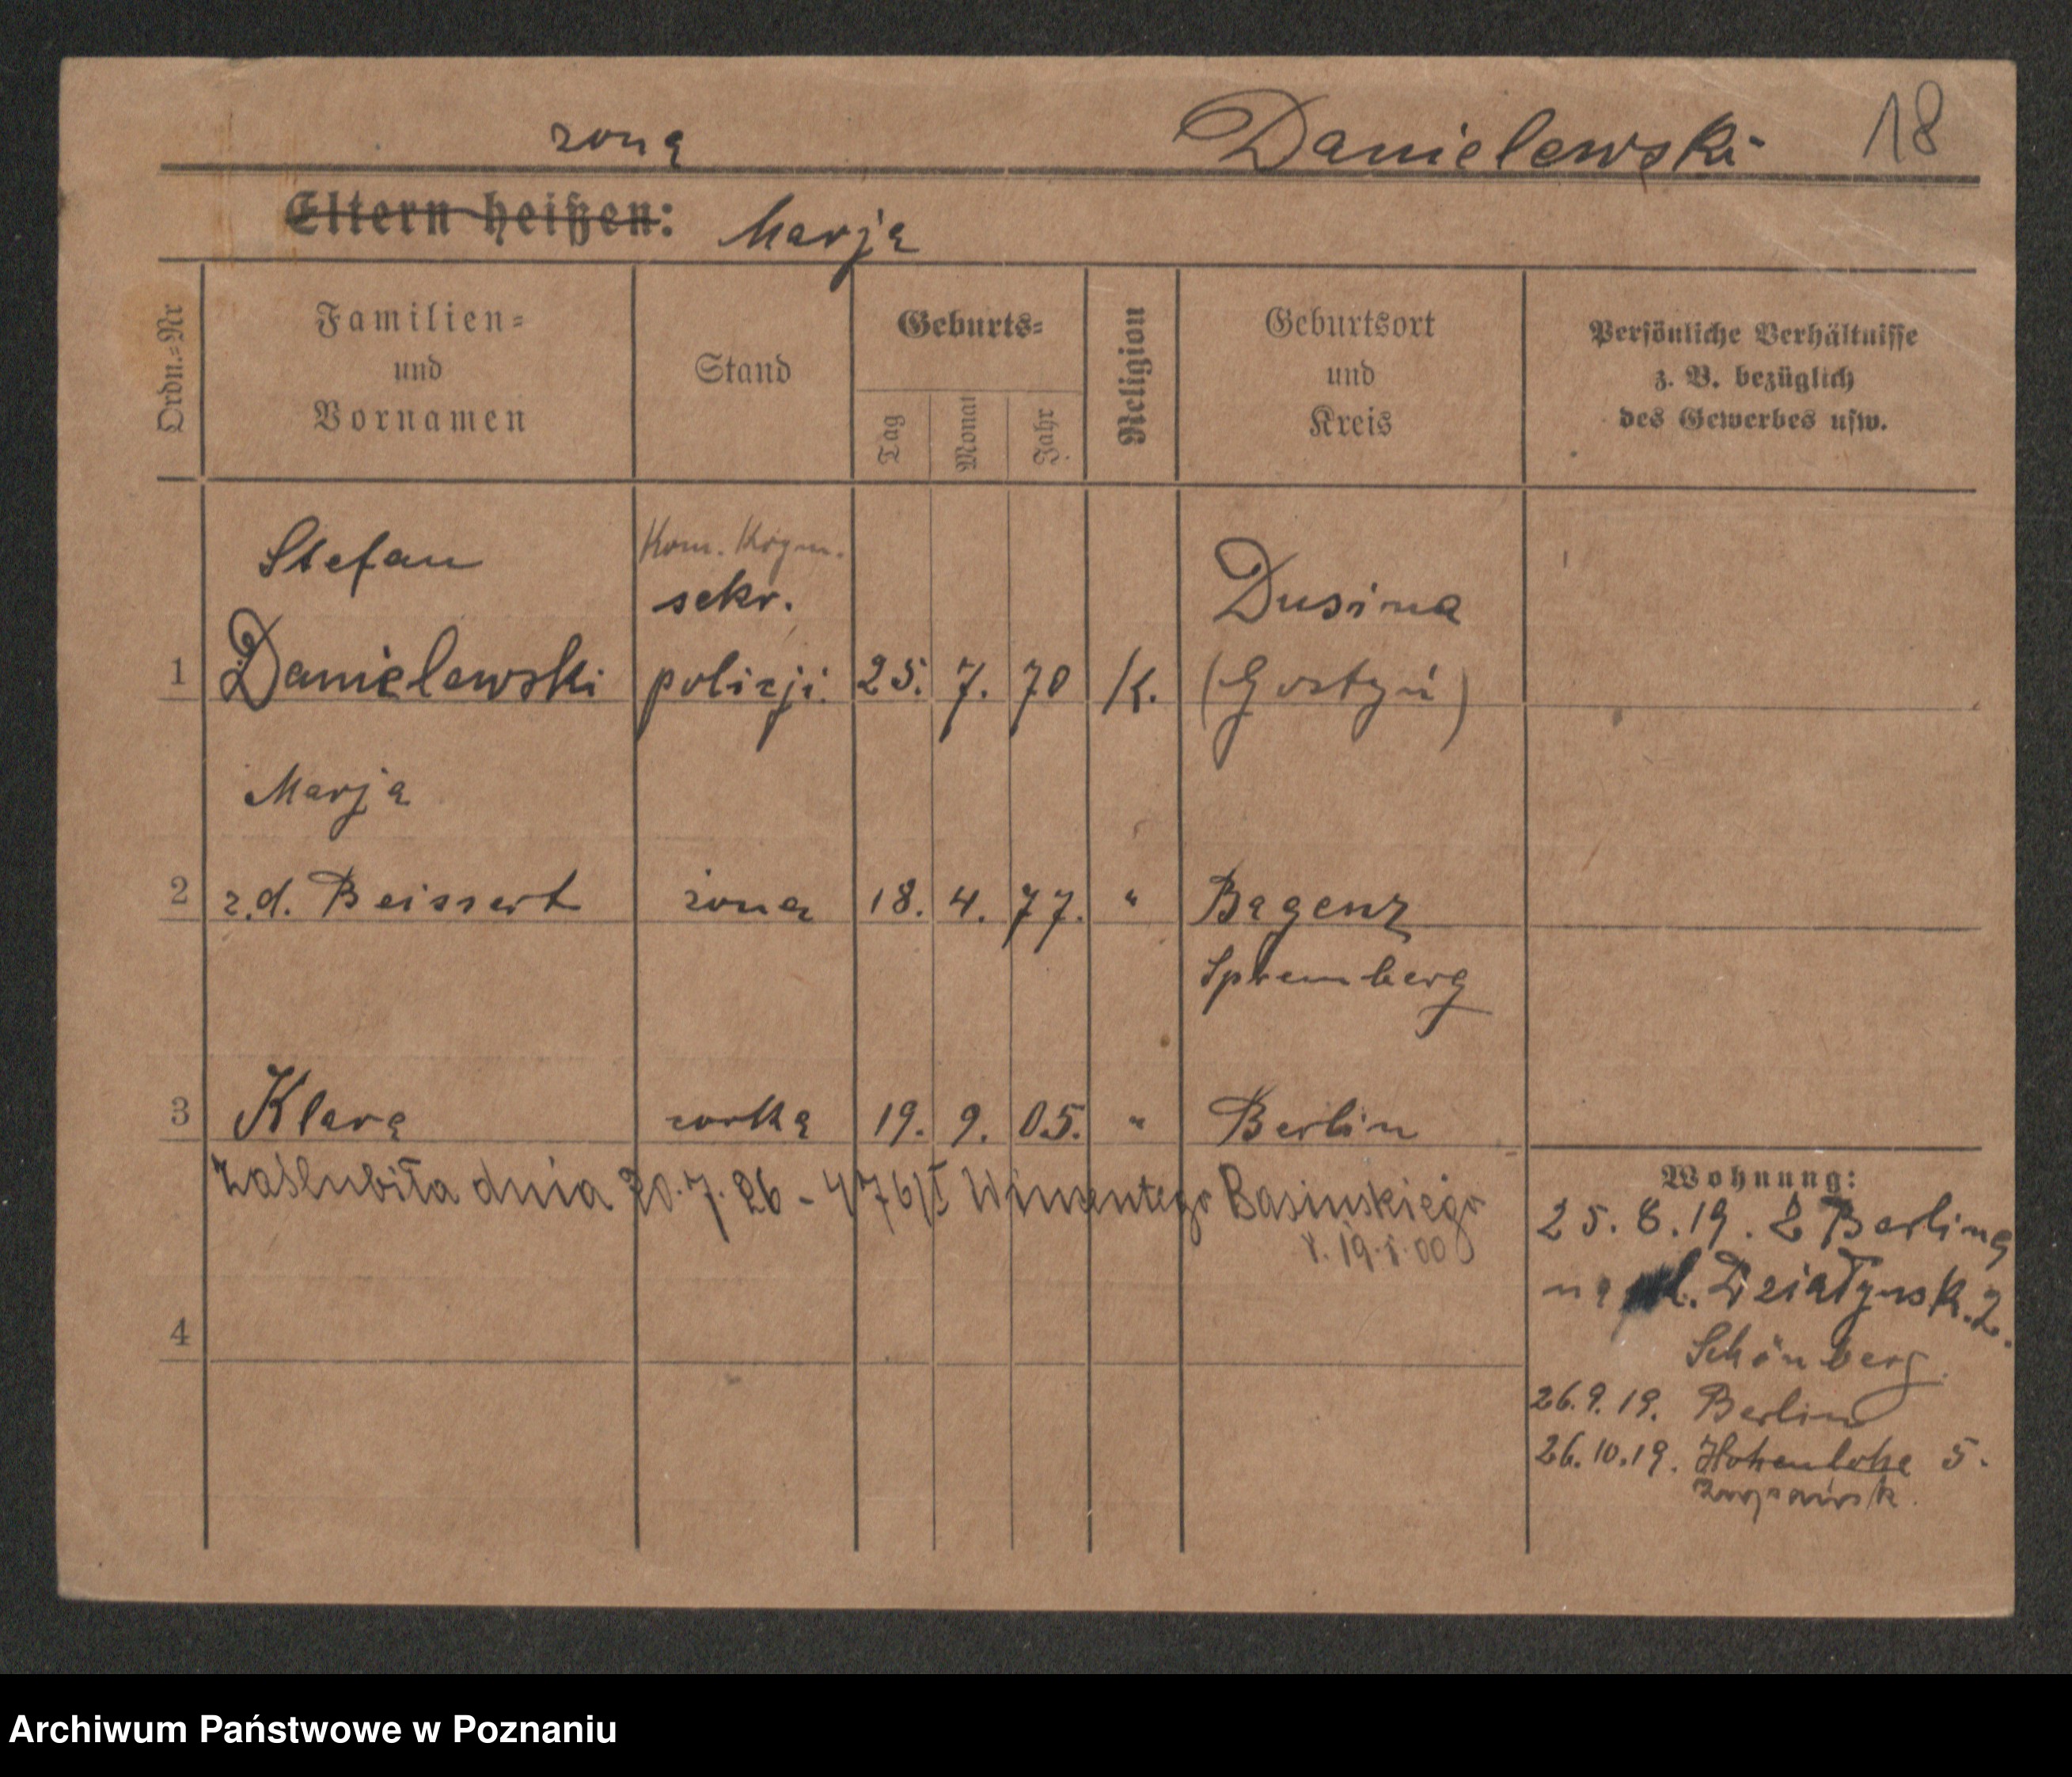 żona Danielewski 18
Eltern heißen: Marja
Ordn.=Nr
Familien=
und
Vornamen
Stand
Geburts=
Tag
Monat
Jahr
Religion
Geburtsort
und
Kreis
Persönliche Verhältnisse
z. B. bezüglich
des Gewerbes usw.
Stefan Kom. Krym.
sekr. Dusina
1 Danielewski policji. 25. 7. 70 K. (Gostyń)
Marja
2 z.d. Beissert żona 18. 4. 77. " Bagenz
Spremberg
3 Klara corka 19. 9. 05. " Berlin
Zaślubiła dnia 20.7.26 - 476/I Wincentego Basinskiego
19.1.00
4
Wohnung:
25.8.19. Z Berlina
na ul. Działyńsk. 2.
Schönberg.
26.9.19. Berlin
26.10.19. Hohenlohe 5.